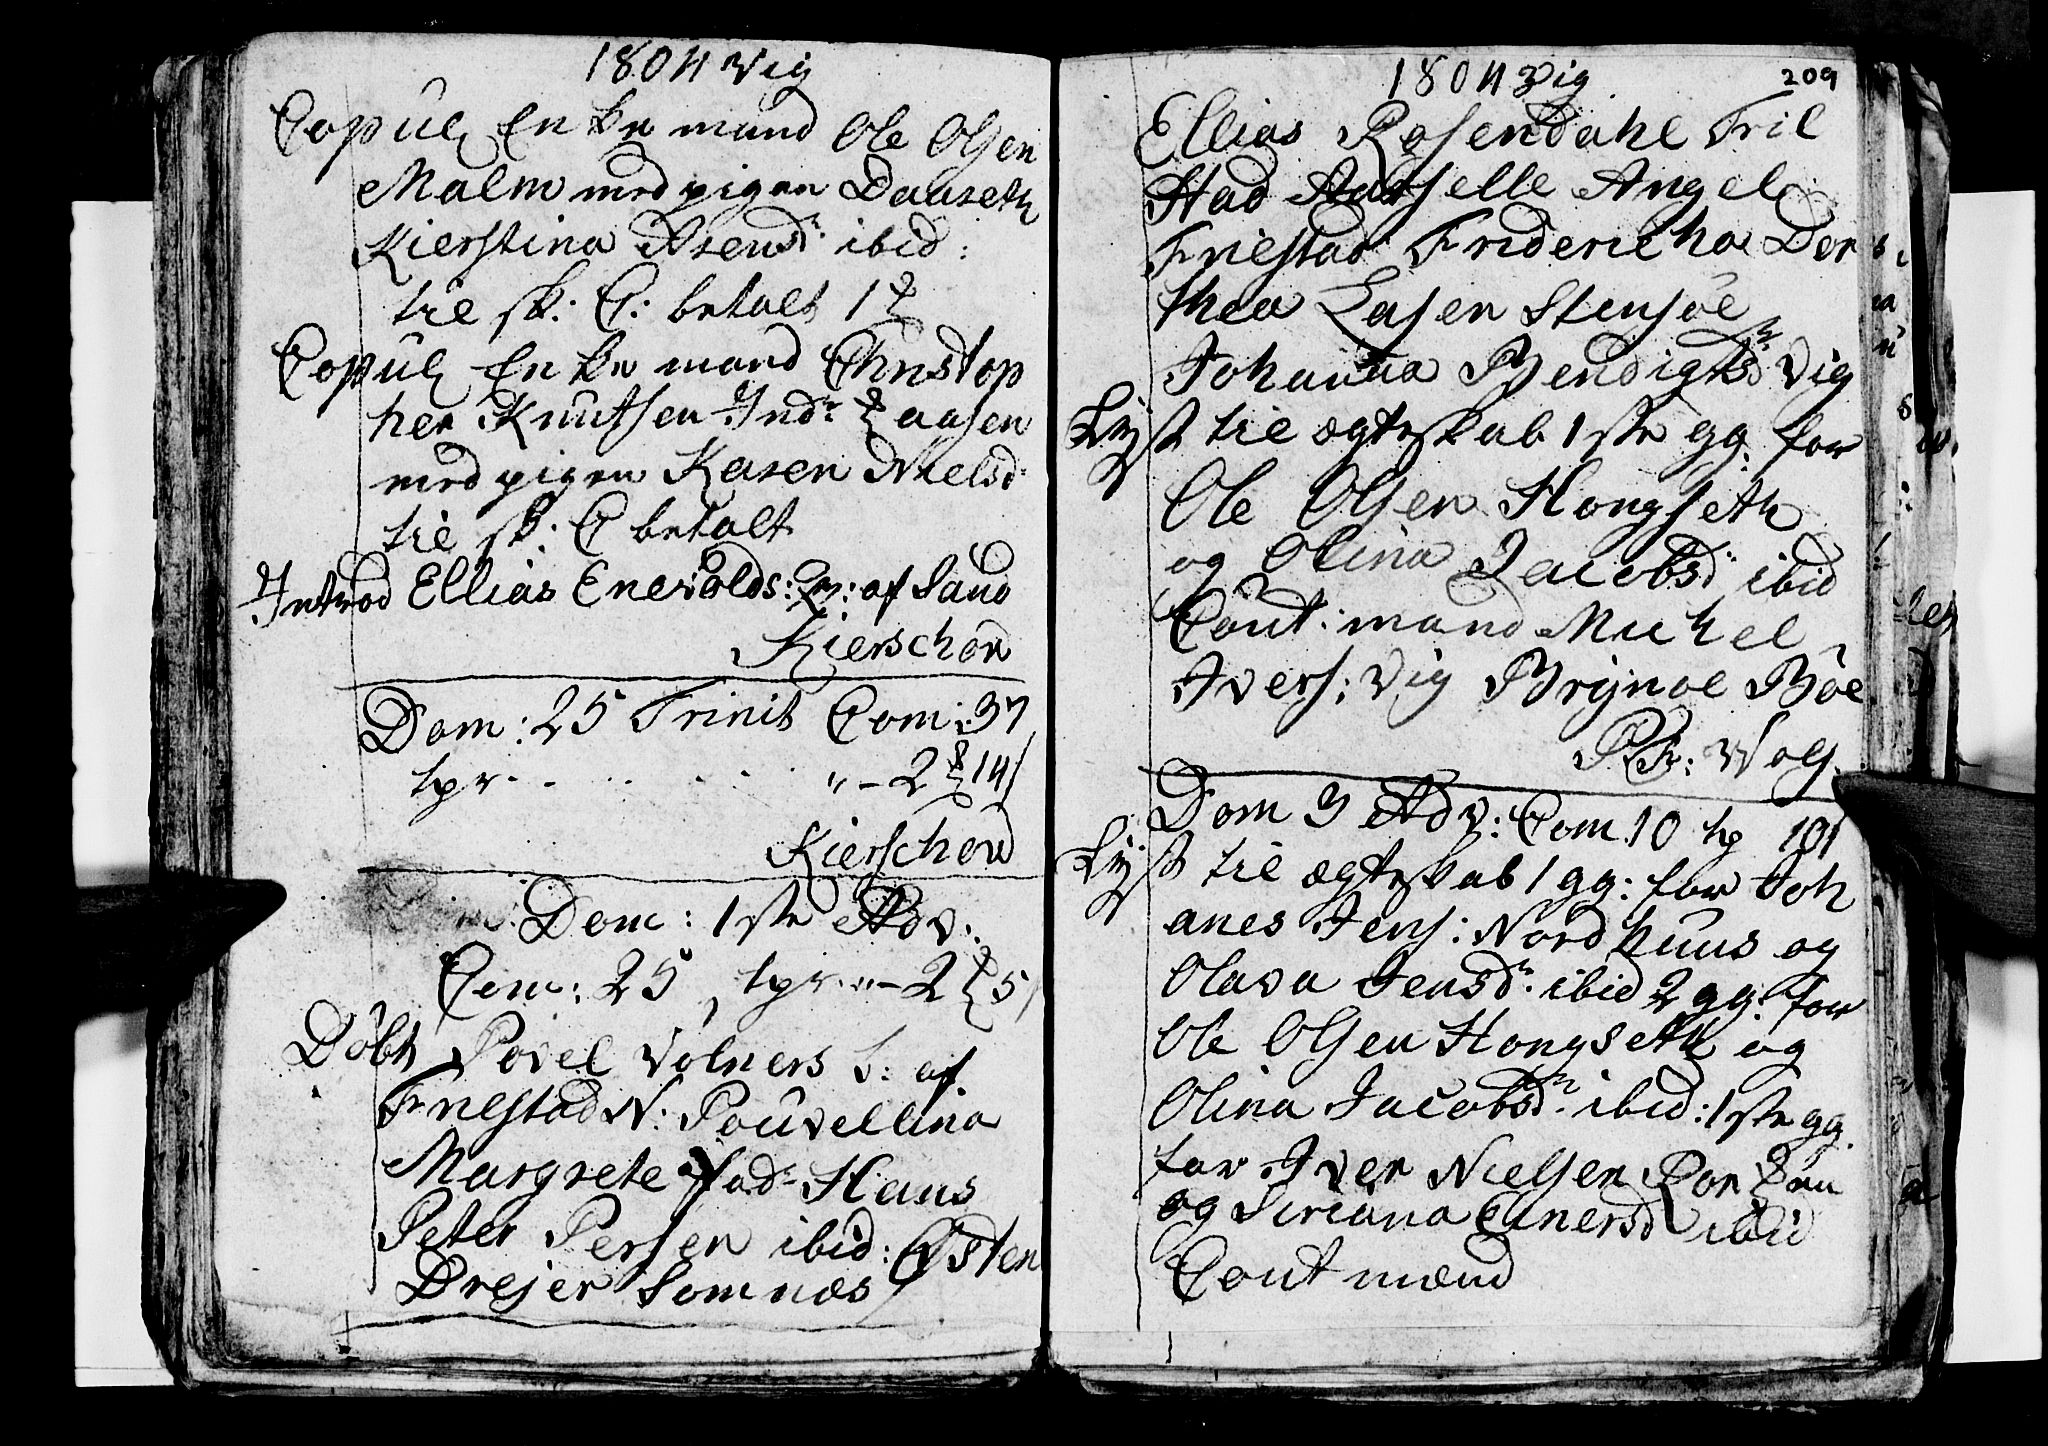 1804 Vig
Copul Enke mand Ole Olsen
Malm med pigen Daarseth
Kierstina Arensd: ibid:
til sk: C: betalt 1
Copul Enke mand Christop
her Knutsen Indr aasen
med pigen Karen Nielsd:
til sk: C betalt
Introd Ellias Enevolds: Q: af Sund
Kierschow
Dom: 25 Trinit Com: 37
tpr - - - - " - 2 14
Kierschow
Dom: 1ste Adv:
Com: 25, tpr " - 2 5
Döbt Povel Volners S: af
Friestad N: Pouvellina
Margrete fad: Hans
Peter Persen ibid: Østen
Drejer Somnæs
1804 Vig
209
Ellias Rosendahl Tril
Stad Aatselle Angel
Friestad Fridericha Dor
thea Lasen Stensöe
Johanna Bendigtsd Vig
Lyst til ægteskab 1ste gg: for
Ole Olsen Hongseth
og Olina Jacobsd: ibid
Caut: mand Michel
Ivers: Vig Brynel Böe
PR: Wols
Dom 3 Adv: Com 10 tp 101
Lyst til ægteskab 1 gg: for Joh
anes Jens: Nordhuus og
Olava Jensdr: ibid 2 gg: for
Ole Olsen Hongseth og
Olina Jacobsdr: ibid: 1ste gg.
for Iver Nielsen
og Siriana Einersd ibid
Caut mænd